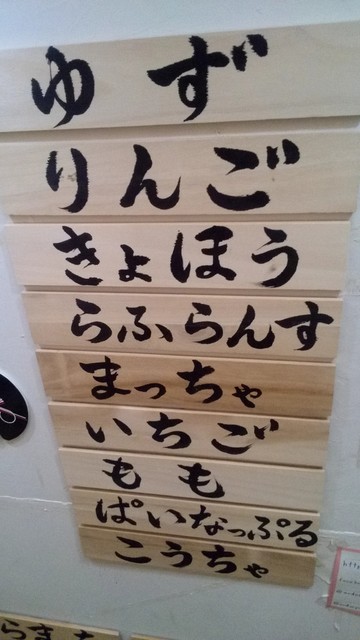 ゆず
りんご
きょほう
らふらんす
まっちゃ
いちご
もも
ぱいなっぷる
こうちゃ